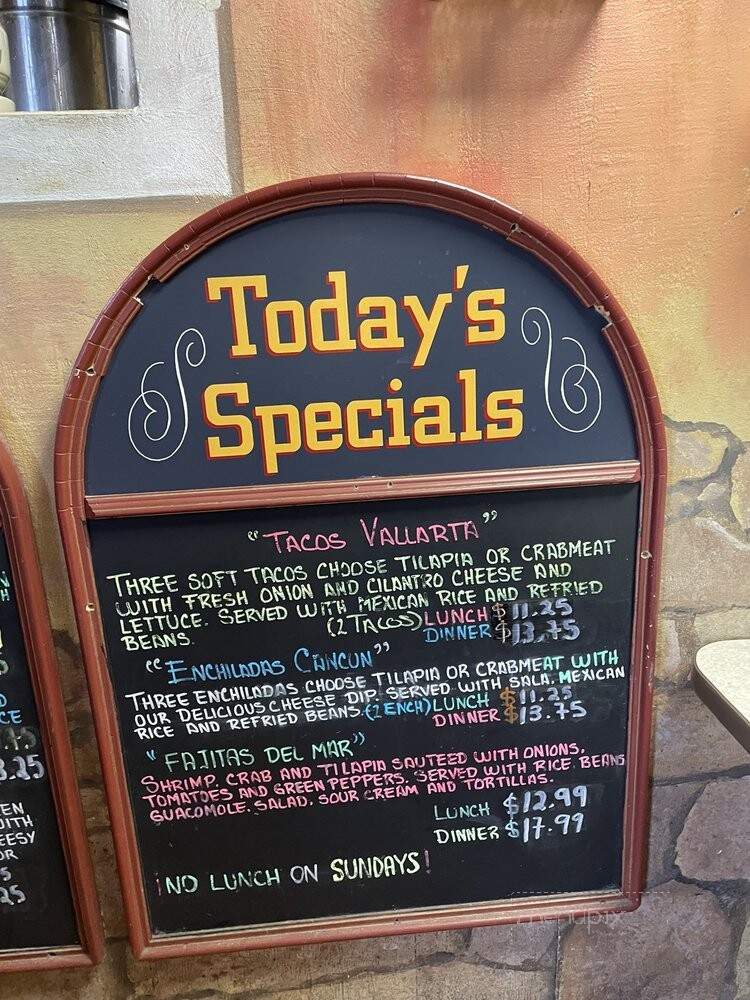 Today's
Specials
"TACOS VALLARTA"
THREE SOFT TACOS CHOOSE TILAPIA OR CRABMEAT
WITH FRESH ONION AND CILANTRO CHEESE AND
LETTUCE. SERVED WITH MEXICAN RICE AND REFRIED
BEANS. (2 TACOS) LUNCH $11.25
DINNER $13.75
"ENCHILADAS CANCUN"
THREE ENCHILADAS CHOOSE TILAPIA OR CRABMEAT WITH
OUR DELICIOUS CHEESE DIP. SERVED WITH SALA. MEXICAN
RICE AND REFRIED BEANS. (2 ENCH) LUNCH $11.25
DINNER $13.75
"FAJITAS DEL MAR"
SHRIMP, CRAB AND TILAPIA SAUTEED WITH ONIONS,
TOMATOES AND GREEN PEPPERS. SERVED WITH RICE, BEANS
GUACOMOLE. SALAD, SOUR CREAM AND TORTILLAS.
LUNCH $12.99
DINNER $17.99
¡NO LUNCH ON SUNDAYS!
menupix